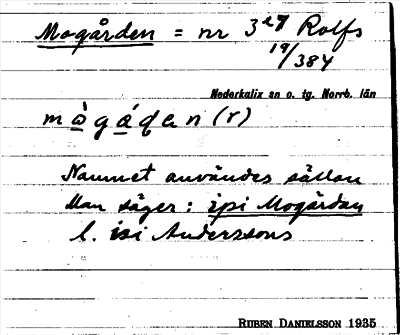 Mogården = nr 3 eg Rolfs
19/384
Nederkalix sn o. tg. Norrb. län
Namnet användes sällan
Man säger: ipi Mogårdan
l. isi Anderssons
RUBEN DANIELSSON 1935